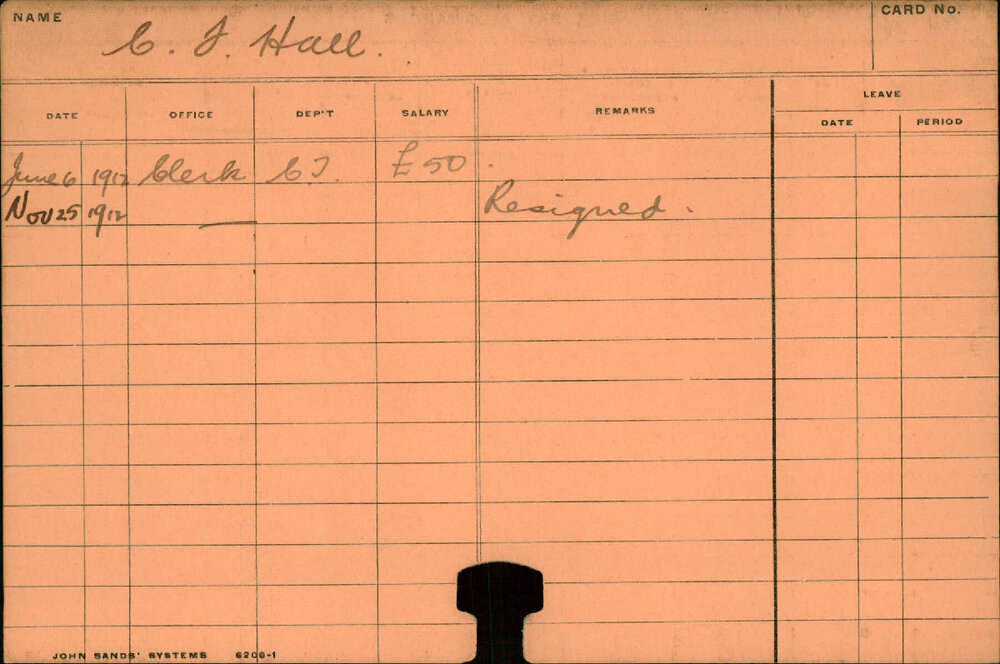 NAME
C. J. Hall.
CARD No.
DATE OFFICE DEP'T SALARY REMARKS LEAVE
DATE PERIOD
June 6 1912 Clerk C.T. £50.
Nov 25 1912 — Resigned.
JOHN SANDS' SYSTEMS 6206-1